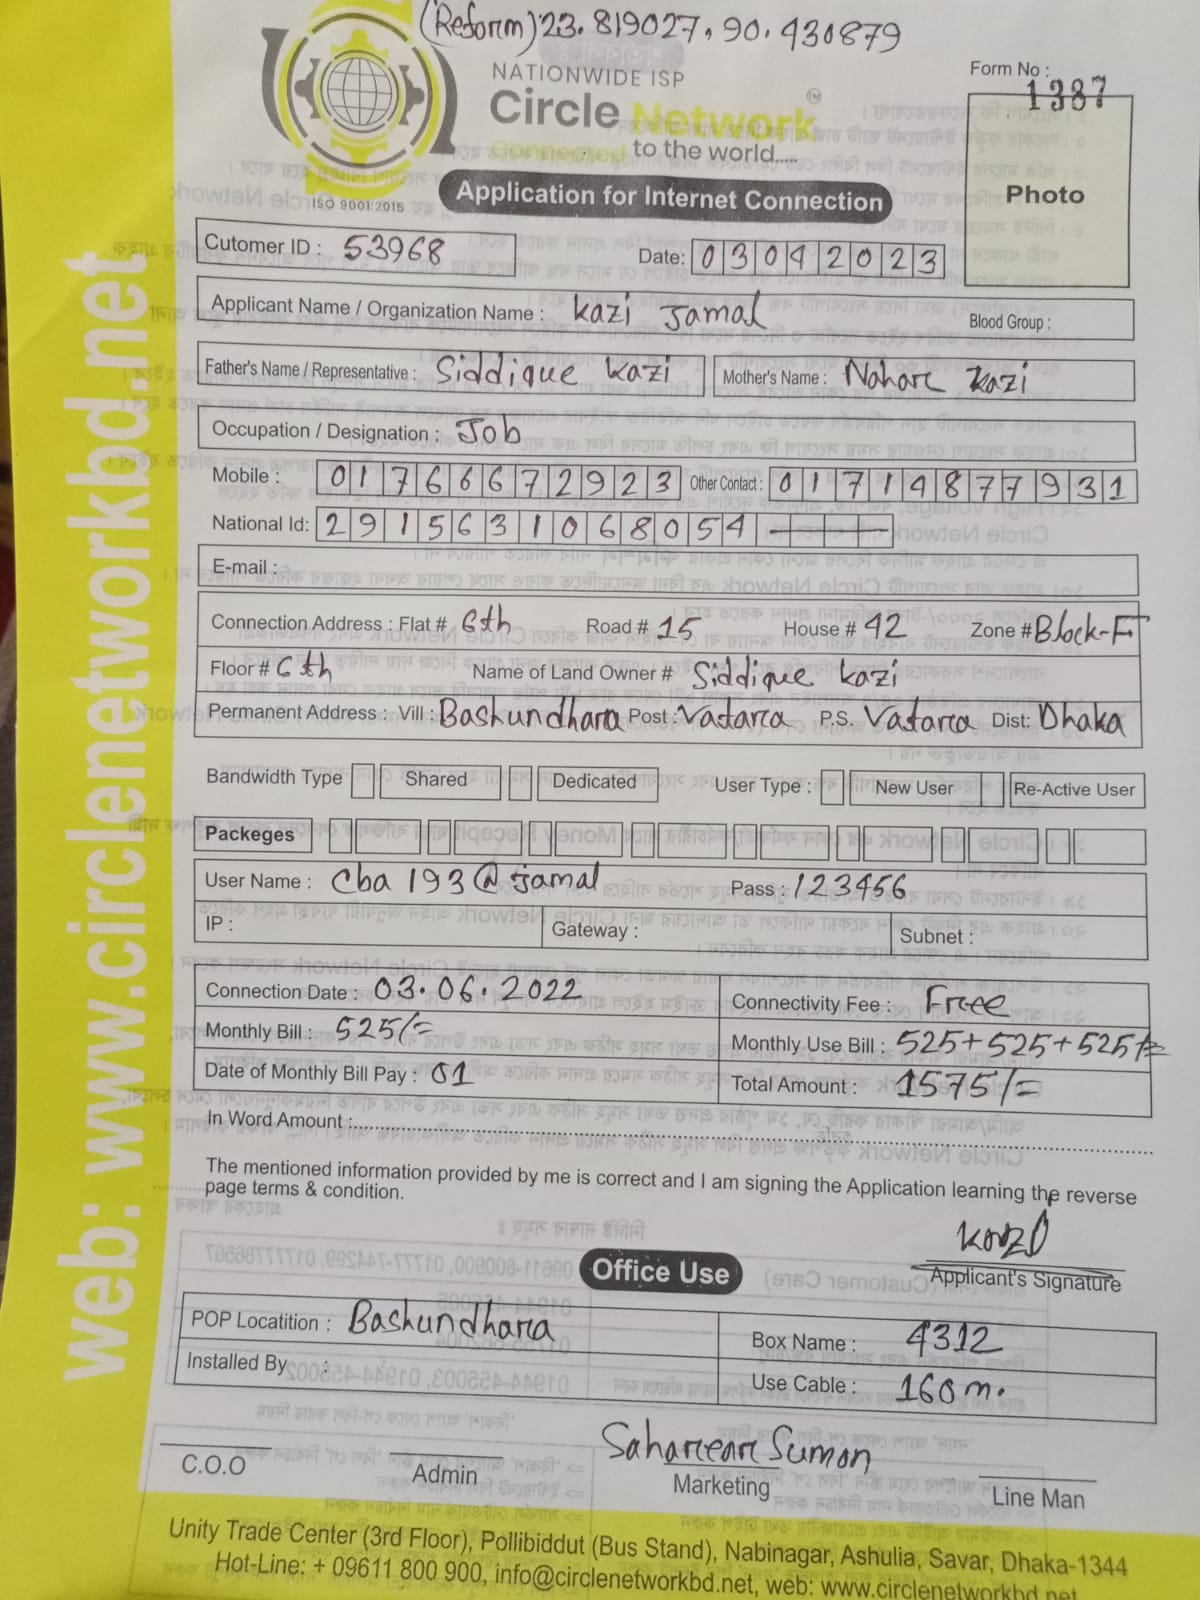 (Reform) 23.819027, 90.430879
NATIONWIDE ISP
Circle Network
Connected to the world.....
ISO 9001:2015
Form No : 1387
Photo
Application for Internet Connection
Cutomer ID : 53968 Date: 03042023
Applicant Name / Organization Name : Kazi Jamal Blood Group :
Father's Name / Representative : Siddique Kazi Mother's Name : Nahar Kazi
Occupation / Designation : Job
Mobile : 01766672923 Other Contact : 01714877931
National Id: 2915631068054
E-mail :
Connection Address : Flat # 6th Road # 15 House # 42 Zone # Block-F
Floor # 6th Name of Land Owner # Siddique Kazi
Permanent Address : Vill : Bashundhara Post : Vatara P.S. Vatara Dist: Dhaka
Bandwidth Type Shared Dedicated User Type : New User Re-Active User
Packeges
User Name : Cba 193@jamal Pass : 123456
IP : Gateway : Subnet :
Connection Date : 03.06.2022 Connectivity Fee : Free
Monthly Bill : 525/= Monthly Use Bill : 525+525+525/=
Date of Monthly Bill Pay : 01 Total Amount : 1575/=
In Word Amount :
The mentioned information provided by me is correct and I am signing the Application learning the reverse
page terms & condition.
Applicant's Signature
Office Use
POP Locatition : Bashundhara Box Name : 4312
Installed By : Use Cable : 160 m.
Sahareear Sumon
C.O.O Admin Marketing Line Man
Unity Trade Center (3rd Floor), Pollibiddut (Bus Stand), Nabinagar, Ashulia, Savar, Dhaka-1344
Hot-Line: + 09611 800 900, info@circlenetworkbd.net, web: www.circlenetworkbd.net
web: www.circlenetworkbd.net